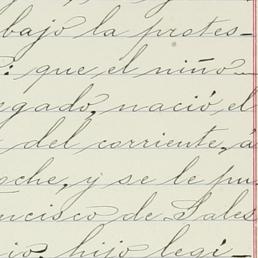 bajo la protes-
: que el niño
egado, nació el
del corriente, á
oche, y se le pu
ncisco de Sales
io, hijo legí-